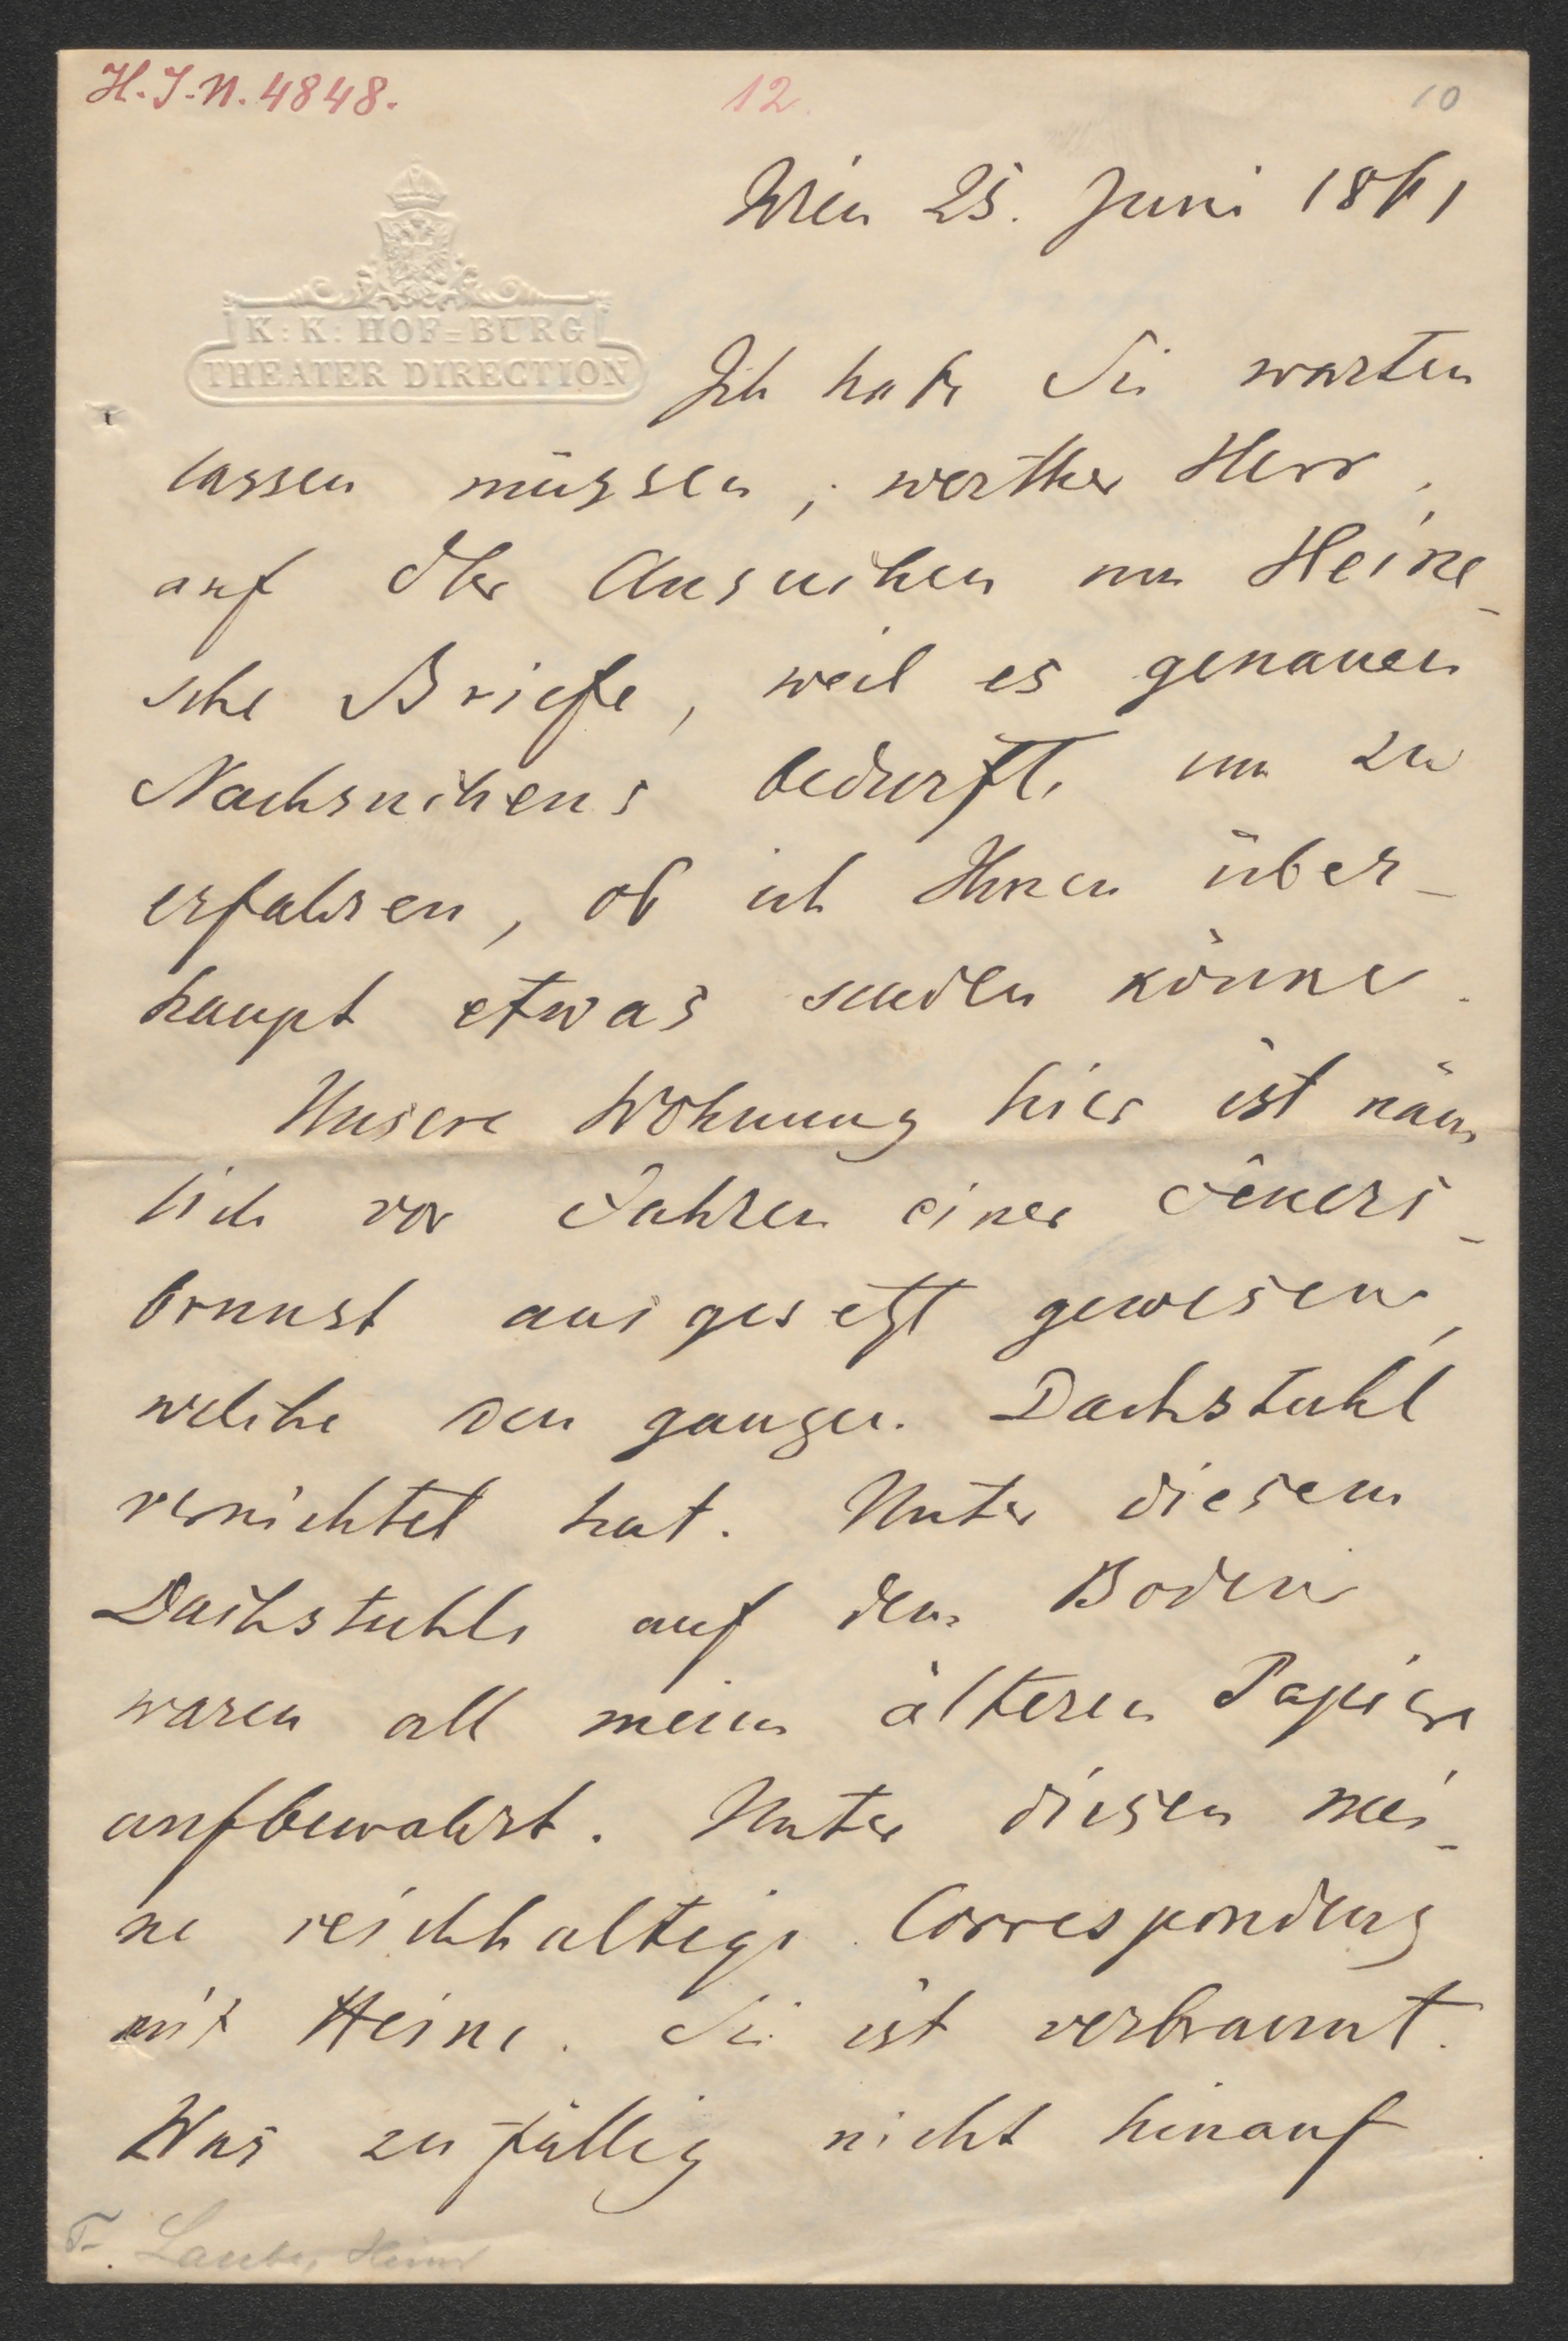 H.I.N. 4848.
12
10
Wien 25. Juni 1861
K: K: HOF-BURG
THEATER DIRECTION
Ich habe Sie warten
lassen müssen, werther Herr,
auf Ihr Ansuchen um Heine-
sche Briefe, weil es genauen
Nachsuchens bedurfte um zu
erfahren, ob ich Ihnen über-
haupt etwas senden könne.
Unsere Wohnung hier ist näm
lich vor Jahren einer Feuers-
brunst ausgesetzt gewesen,
welche den ganzen Dachstuhl
vernichtet hat. Unter diesem
Dachstuhle auf dem Boden
waren all meine älteren Papiere
aufbewahrt. Unter diesen mei-
ne reichhaltige Correspondenz
mit Heine. Sie ist verbrannt.
Was zufällig nicht hinauf
F. Laube, Heinr